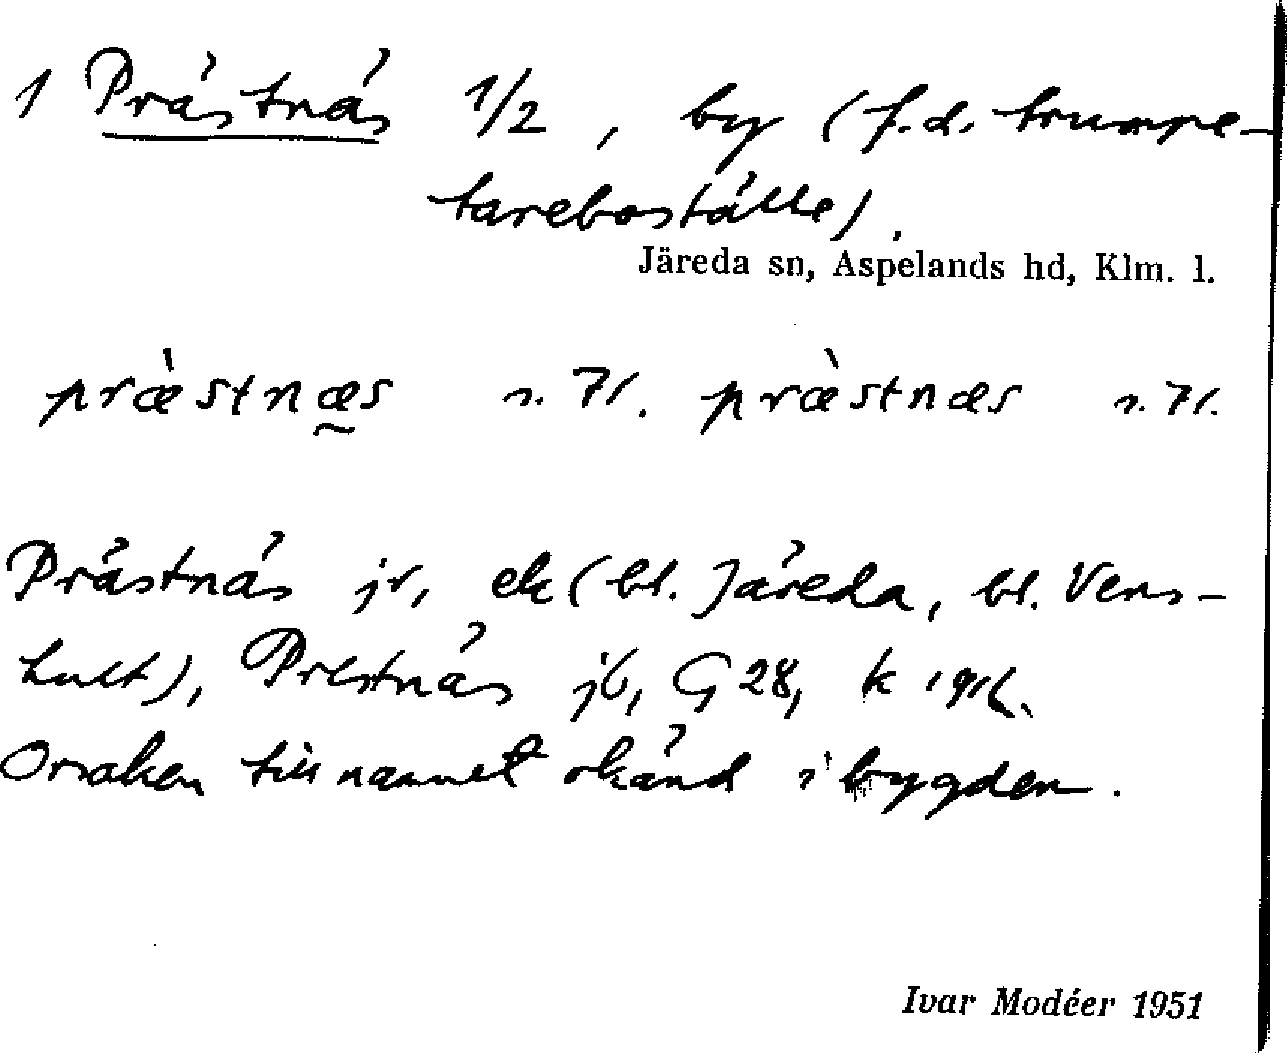 1 Prästnäs 1/2, by (f.d. trumpe-
tareboställe).
Järeda sn, Aspelands hd, Klm. l.
præ̀stnæ̰s s. 71. præ̀stnæs s. 71.
Prästnäs jr, ek (bl. Järeda, bl. Vens-
hult), Prestnäs jb, G 28, k 1916.
Orsaken till namnet okänd i bygden.
Ivar Modéer 1951